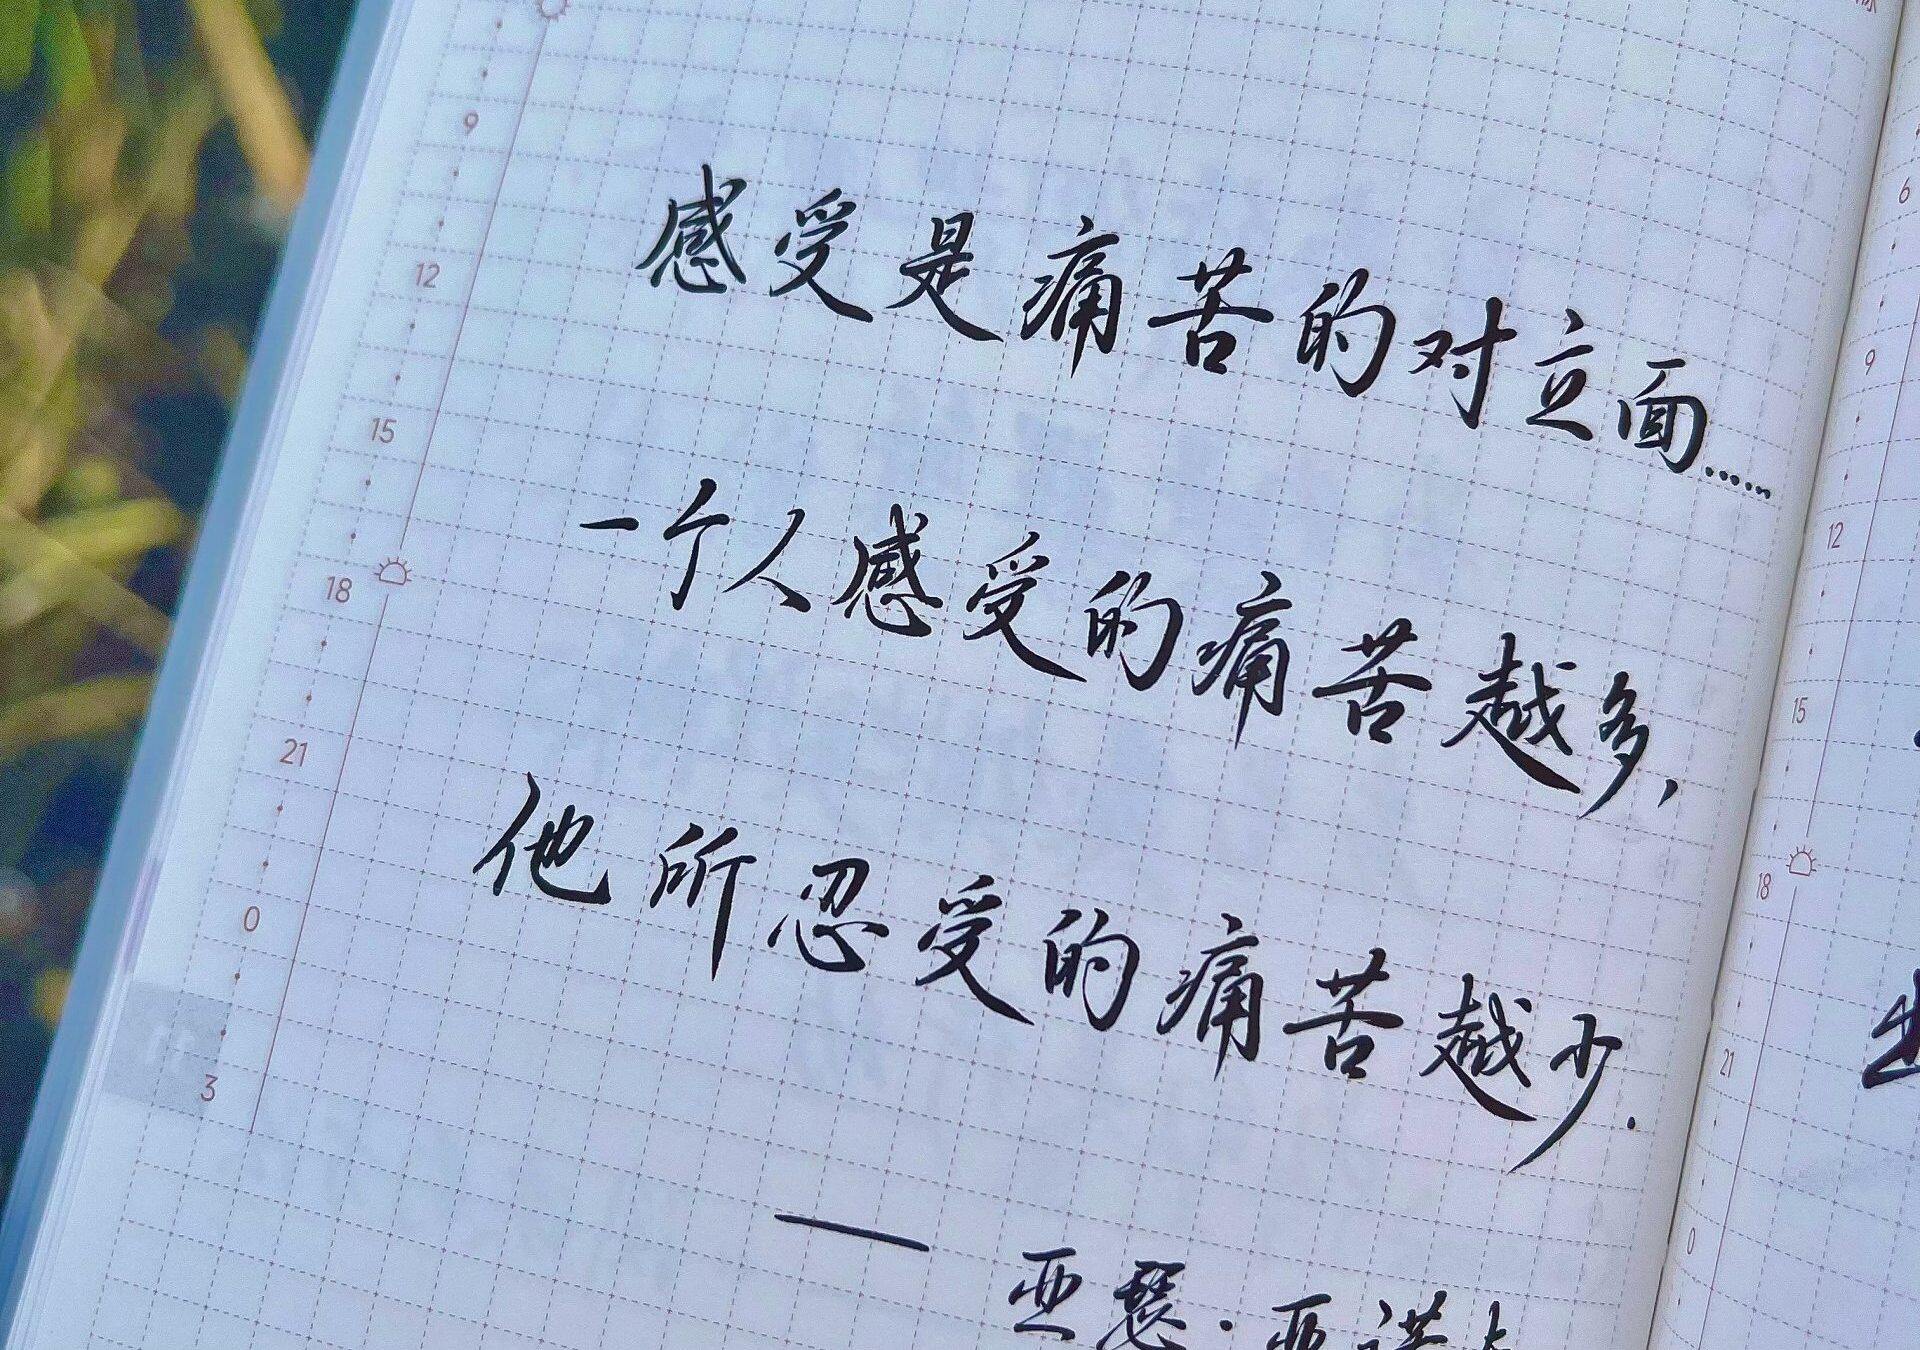 感受是痛苦的对立面……
一个人感受的痛苦越多,
他所忍受的痛苦越少.
— 亚瑟·亚诺
9
12
15
18
21
0
3
6
9
12
15
18
21
0